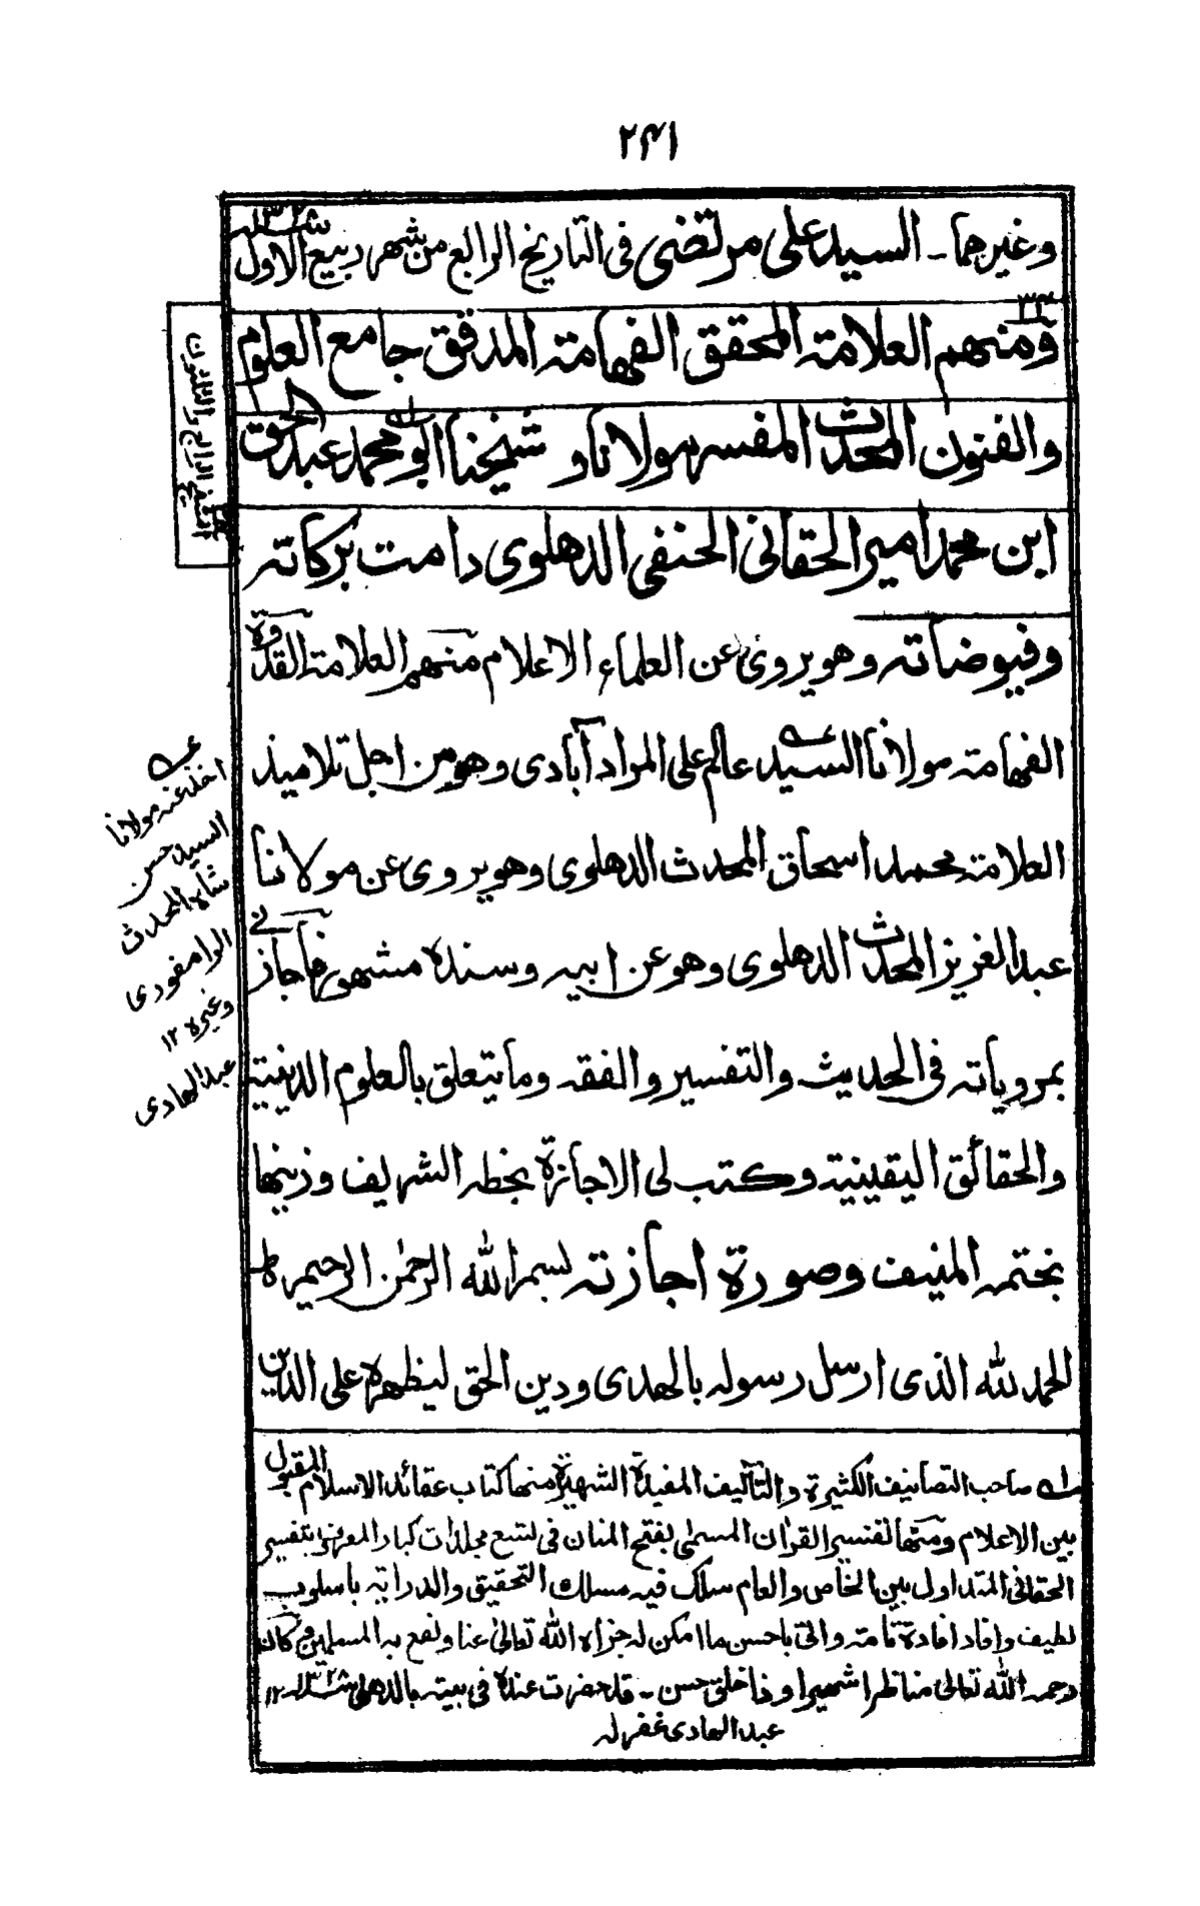 ٢٤١
وغيرهما ـ السيد على مرتضى فى التاريخ الرابع من شهر ربيع الاول
٣٤
ومنهم العلامة المحقق الفهامة المدقق جامع العلوم
والفنون المحدث المفسر مولانا و شيخنا ابو محمد عبد الحق
ابن محمد امير الحقانى الحنفى الدهلوى دامت بركاته
وفيوضاته وهو يروى عن العلماء الاعلام منهم العلامة القدوة
الفهامة مولانا السيد عالم على المراد آبادى وهو من اجل تلاميذ
العلامة محمد اسحاق المحدث الدهلوى وهو يروى عن مولانا
عبد العزيز المحدث الدهلوى وهو عن ابيه وسنده مشهور فاجازنى
بمروياته فى الحديث والتفسير والفقه وما يتعلق بالعلوم الدينية
والحقائق اليقينية وكتب لى الاجازة بخطه الشريف وزينها
بختمه المنيف وصورة اجازته بسم الله الرحمٰن الرحيم ط
الحمد لله الذى ارسل رسوله بالهدى ودين الحق ليظهره على الدين
الشيخ الرابع والثلثون
عه
اخذ عنه مولانا
السيد حسن
شاه المحدث
الرامفورى
وغيره ١٢
عبد الهادى
له صاحب التصانيف الكثيرة والتآليف المفيدة الشهيرة منها كتاب عقائد الاسلام المقبول
بين الاعلام ومنها تفسير القرآن المسمى بفتح المنان فى تسع مجلدات كبار المعروف بتفسير
الحقانى المتداول بين الخاص والعام سلك فيه مسلك التحقيق والدراية باسلوب
لطيف وافاد افادة تامة واتى باحسن ما امكن له جزاه الله تعالى عنا ونفع به المسلمين وكان
رحمه الله تعالى مناظرا شهيرا وذا خلق حسن ـ قد حضرت عنده فى بيته بالدهلى ١٣٢٨ ١٢
عبد الهادى غفر له